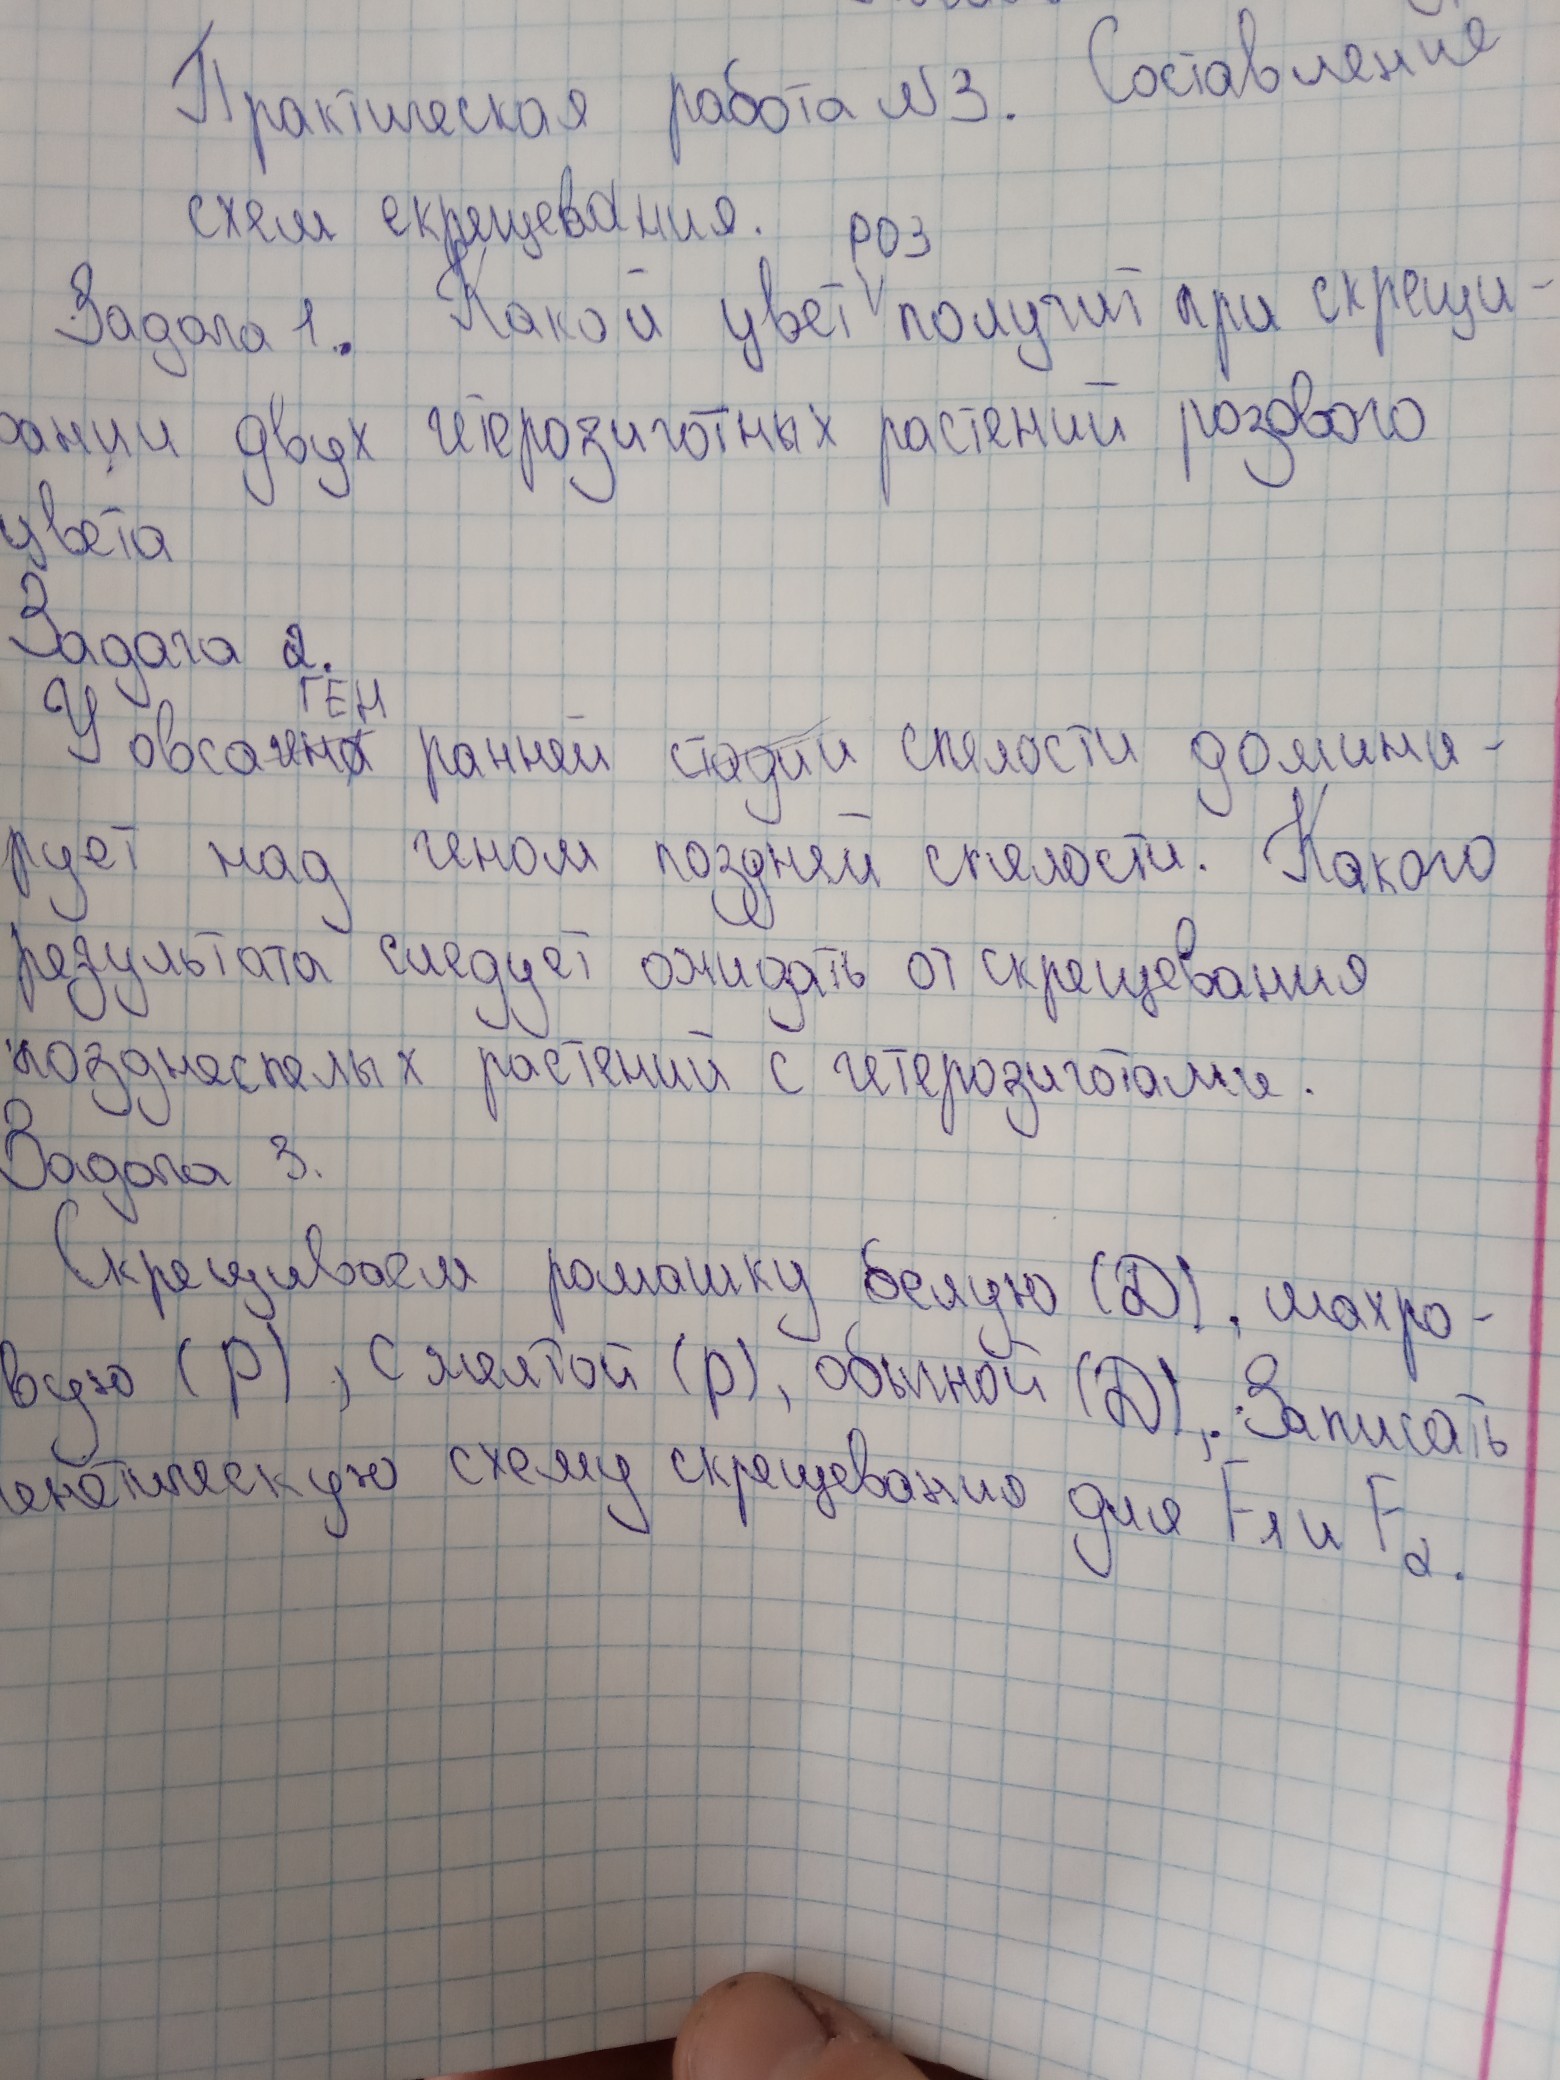 Практическая работа №3. Составление
схем скрещевания.
роз
Задача 1. Какой цвет получит при скрещи-
вании двух гетерозиготных растений розового
цвета
Задача 2.
ГЕН
У овса ранней стадии спелости домини-
рует над геном поздней спелости. Какого
результата следует ожидать от скрещевания
позднеспелых растений с гетерозиготами.
Задача 3.
Скрещиваем ромашку белую (Д), махро-
вую (р), с желтой (р), обычной (Д), Записать
енетическую схему скрещеванию для F1 и F2.